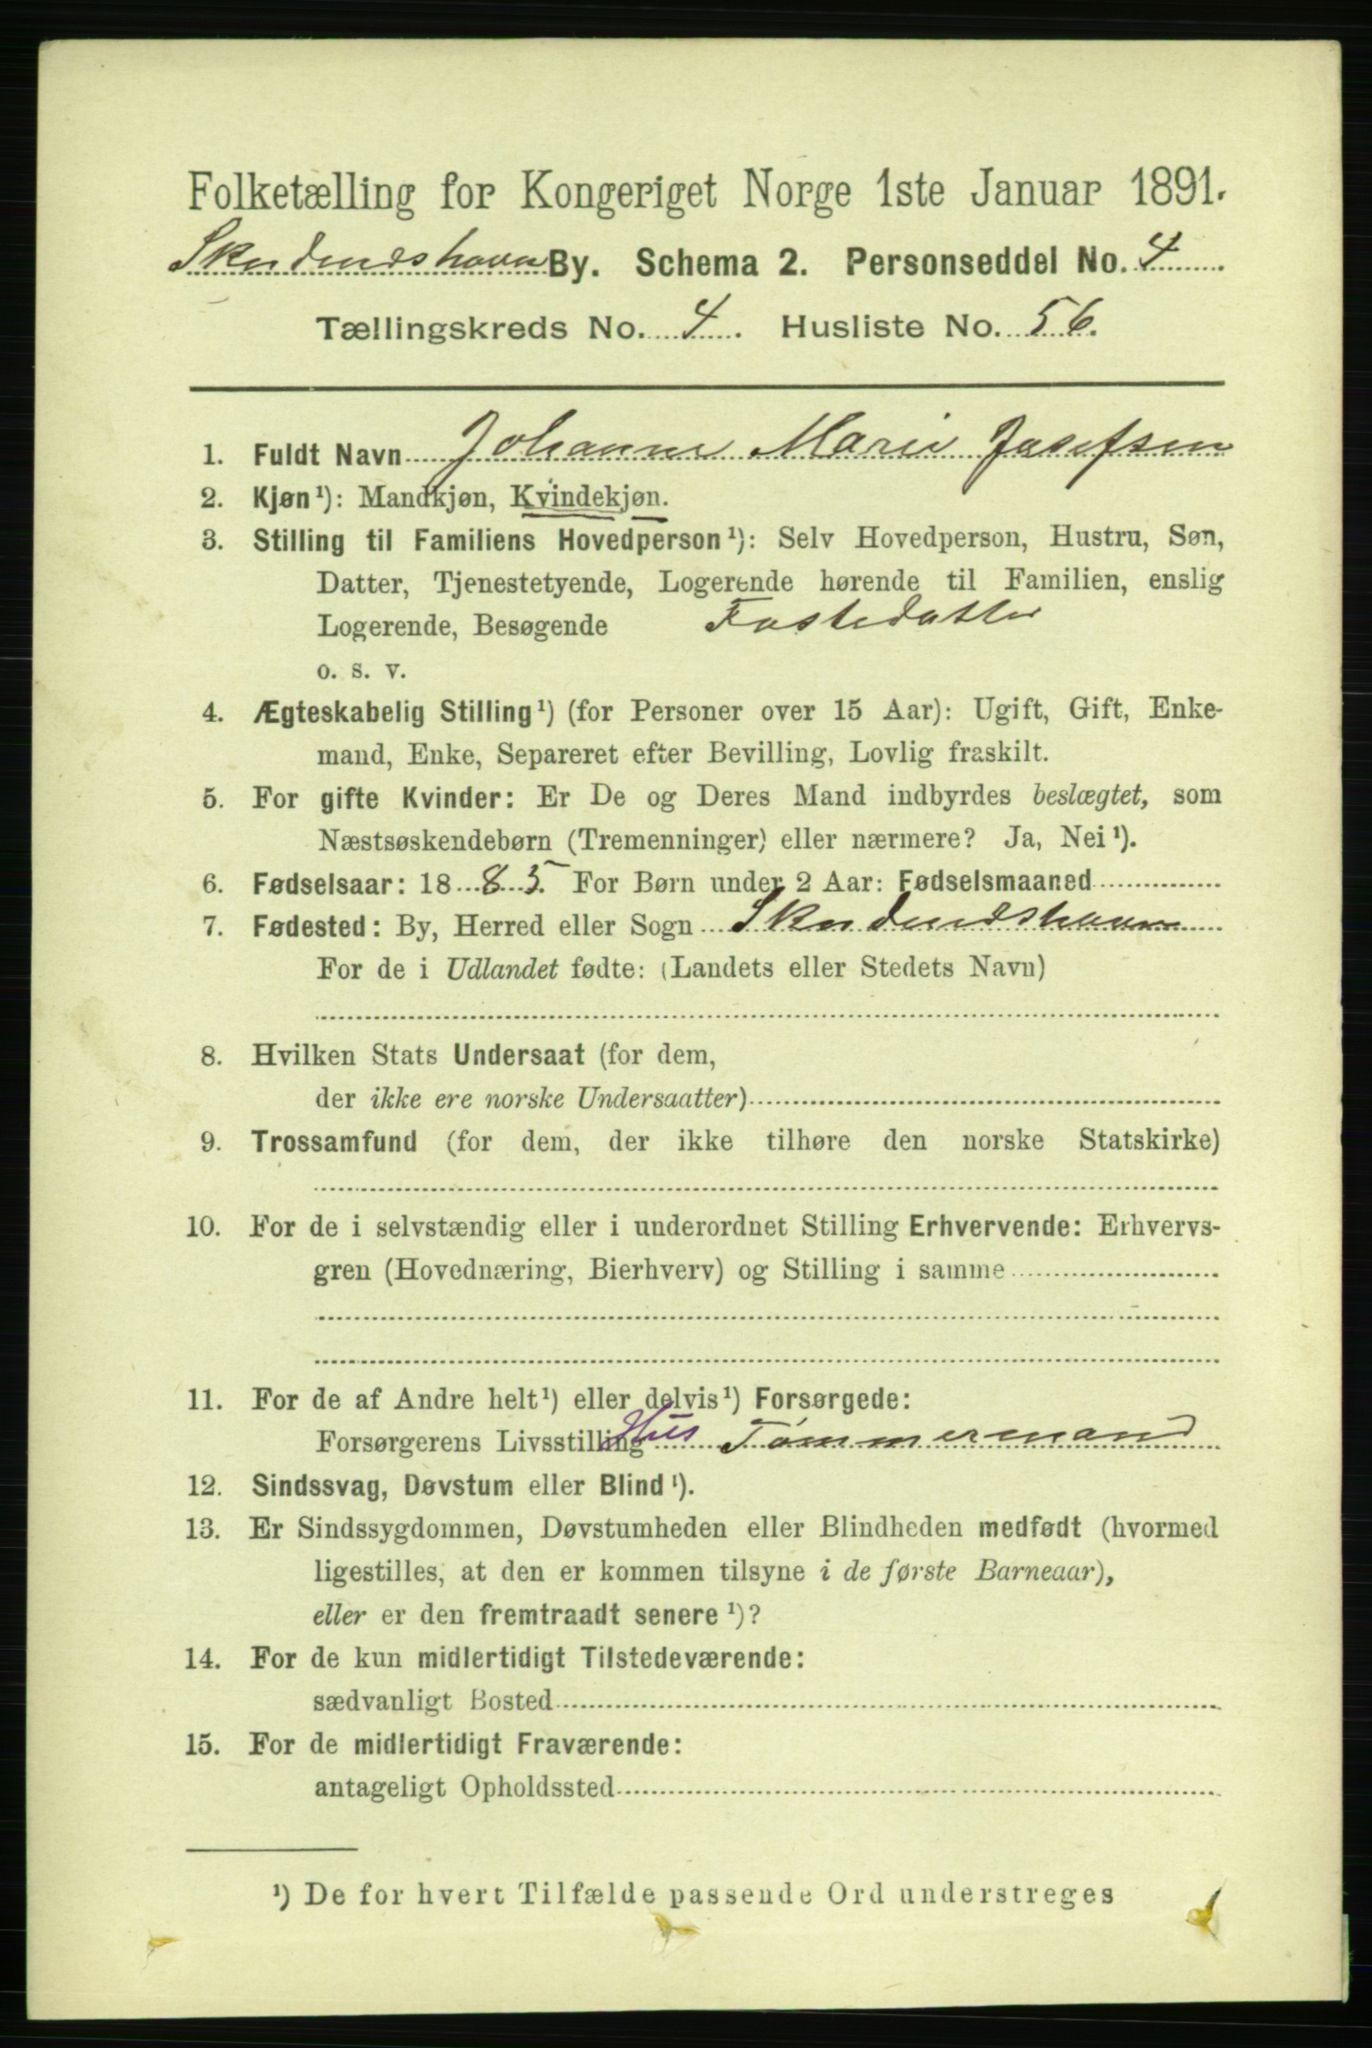 Folketælling for Kongeriget Norge 1ste Januar 1891.
Skudeneshavn By. Schema 2. Personseddel No. 4
Tællingskreds No. 4. Husliste No. 56.
1. Fuldt Navn Johanne Marie Josefsen
2. Kjøn¹): Mandkjøn, Kvindekjøn.
3. Stilling til Familiens Hovedperson¹): Selv Hovedperson, Hustru, Søn,
Datter, Tjenestetyende, Logerende hørende til Familien, enslig
Logerende, Besøgende Fostedatter
o. s. v.
4. Ægteskabelig Stilling¹) (for Personer over 15 Aar): Ugift, Gift, Enke-
mand, Enke, Separeret efter Bevilling, Lovlig fraskilt.
5. For gifte Kvinder: Er De og Deres Mand indbyrdes beslægtet, som
Næstsøskendebørn (Tremenninger) eller nærmere? Ja, Nei¹).
6. Fødselsaar: 1885. For Børn under 2 Aar: Fødselsmaaned
7. Fødested: By, Herred eller Sogn Skudeneshavn
For de i Udlandet fødte: (Landets eller Stedets Navn)
8. Hvilken Stats Undersaat (for dem,
der ikke ere norske Undersaatter)
9. Trossamfund (for dem, der ikke tilhøre den norske Statskirke)
10. For de i selvstændig eller i underordnet Stilling Erhvervende: Erhvervs-
gren (Hovednæring, Bierhverv) og Stilling i samme
11. For de af Andre helt¹) eller delvis¹) Forsørgede:
Forsørgerens Livsstilling Hus Tømmermand
12. Sindssvag, Døvstum eller Blind¹).
13. Er Sindssygdommen, Døvstumheden eller Blindheden medfødt (hvormed
ligestilles, at den er kommen tilsyne i de første Barneaar),
eller er den fremtraadt senere¹)?
14. For de kun midlertidigt Tilstedeværende:
sædvanligt Bosted
15. For de midlertidigt Fraværende:
antageligt Opholdssted
¹) De for hvert Tilfælde passende Ord understreges